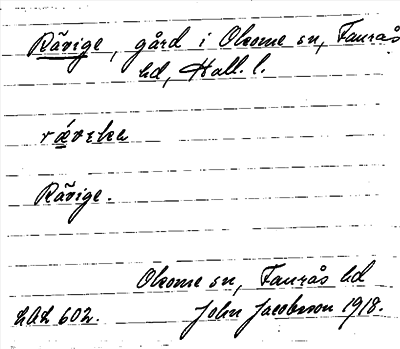 Rävige, gård i Okome sn, Faurås
hd, Hall. l.
Rävige.
Okome sn, Faurås hd
LAL 602. John Jacobsson 1918.